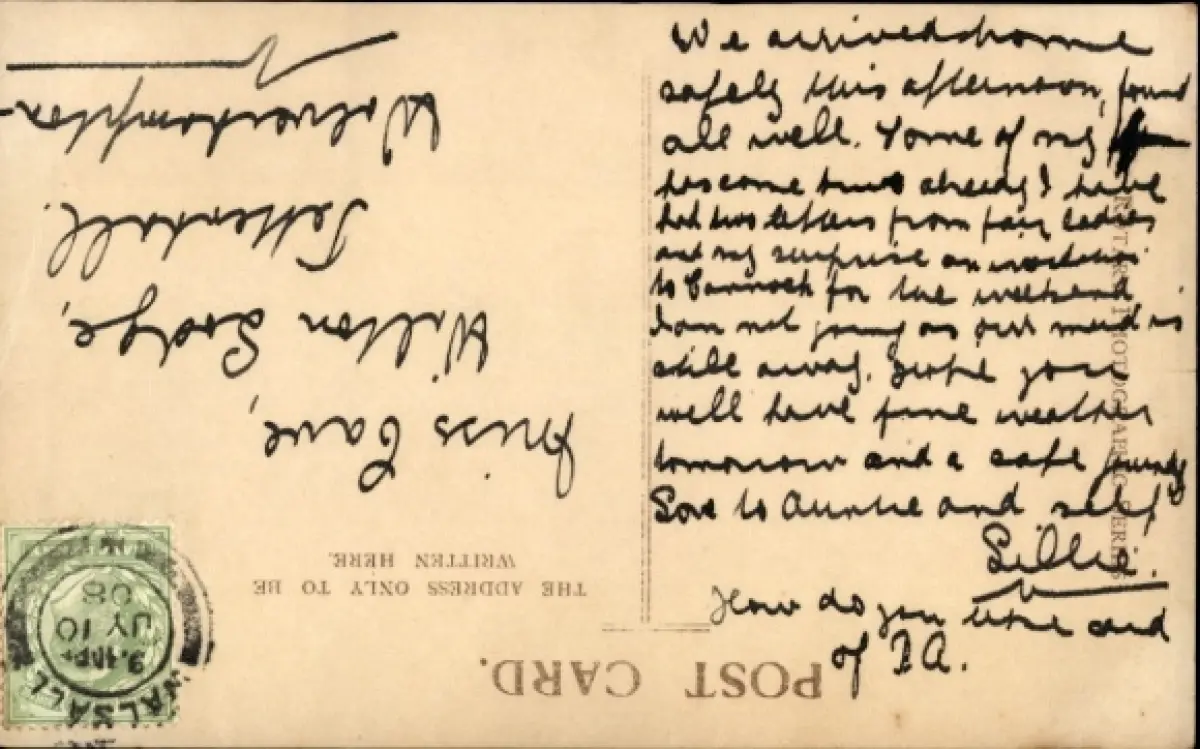 We arrived home
safely this afternoon, found
all well. Some of my
has come true already I have
had two letters from fair ladies
and my surprise an invitation
to Cannock for the weekend
I am not going as our maid is
still away. Hope you
well have fine weather
tomorrow and a safe journey
Love to Auntie and self
Lillie.
How do you like
of P.A.
Miss Cave,
Wilton Lodge,
Tettenhall.
Wolverhampton
POST CARD.
THE ADDRESS ONLY TO BE
WRITTEN HERE.
ROTARY PHOTOGRAPHIC SERIES
WALSALL
JY 10
08